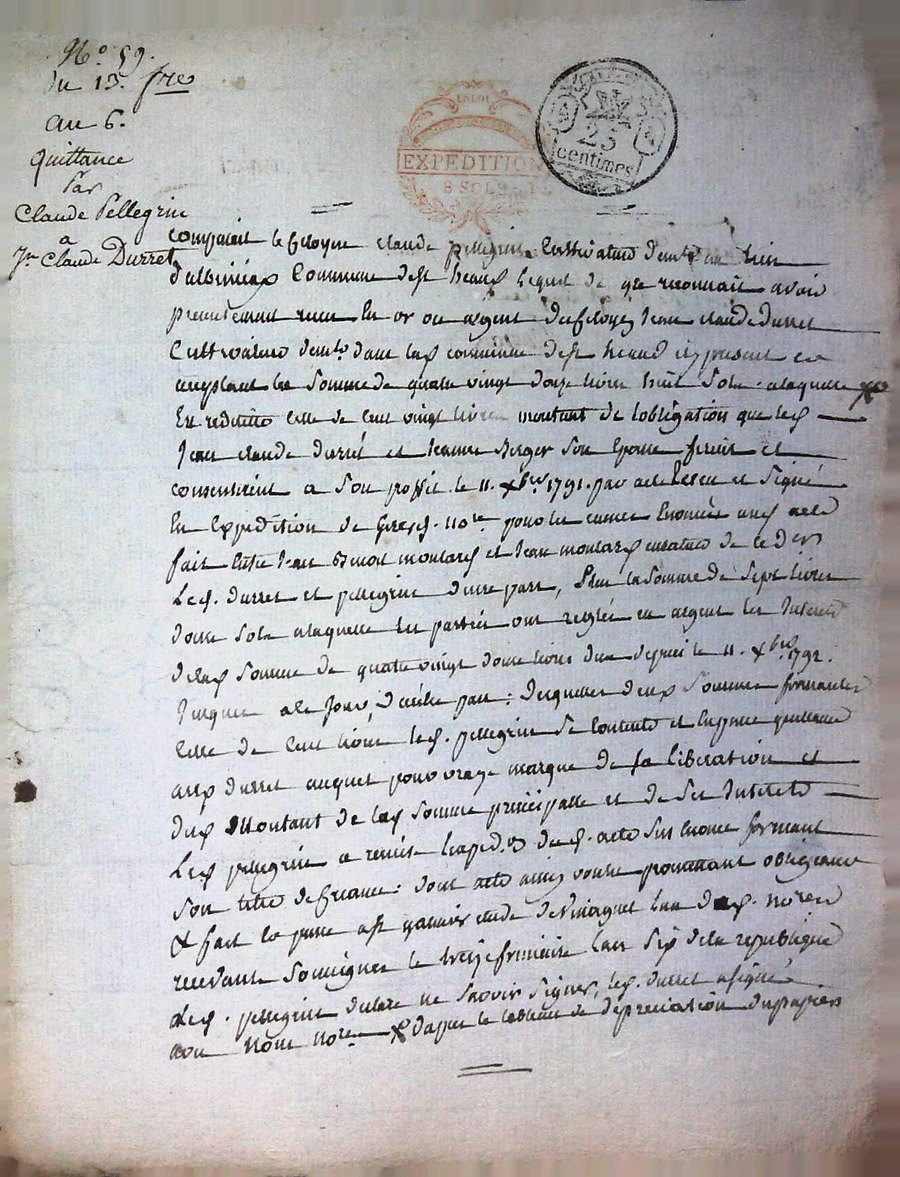 N.o 59.
du 13. fre
an 6.
Quittance
Par
Claude Pellegrin
a
Jn Claude Durret
LA LOI
EXPEDITION
8 SOLS
25
centimes
comparait le citoyen claude pellegrin Cultivateur demt au lieu
Commune de st heand lequel de gré reconnait avoir
presentement recu En or ou argent du Citoyen Jean claude durret
Cultivateur demt dans lad commune de st heand icy present ce
acceptant la Somme de quatre vingt douze livres huit Sols alaquelle x
Est reduitte celle de Cent vingt livres montant de lobligation que led
Jean claude durret et Jeanne Berger Son Epouse firent et
consentirent a Son proffit le 11. xbre 1791. par acte Recu et Signé
En Expedition de not.re pour les causes Enoncées aud acte
fait Entre Jean montard et Jean montard de ce d
Led. durret et pellegrin dautre part, Plus la Somme de Sept livres
douze Sols alaquelle les parties ont reglés en argent les Interets
delad Somme de quatre vingt douze livres dus depuis le 11. xbre 1792.
Jusques a ce Jour, de cette part: desquelles deux Sommes formantes
Celle de Cent livres led. pellegrin Se contente et En passe quittance
aud durret auquel pour vraye marque de Sa liberation et
du montant de lad Somme principalle et de Ses Interets
Led pellegrin a remis lexped.on dud. acte Sus Enoncé formant
Son titre de Creance: dont acte ainsy voulu promettant obligeant
& fait lu passé a st en letude de lun des d. not.res
recevant Soussignés le treize frimaire lan Six dela republique
& led. pellegrin declare ne Savoir Signer, led. durret a Signé
avec Nous not.re x dapres le tableau de depreciation du papier